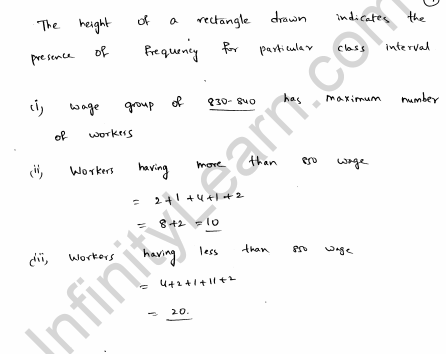 The height of a rectangle drawn indicates the
presence of frequency for particular class interval
(i), wage group of 830-840 has maximum number
of workers
(ii), Workers having more than 850 wage
= 2+1+4+1+2
= 8+2 = 10
(iii), Workers having less than 850 wage
= 4+2+1+11+2
= 20.
InfinityLearn.com